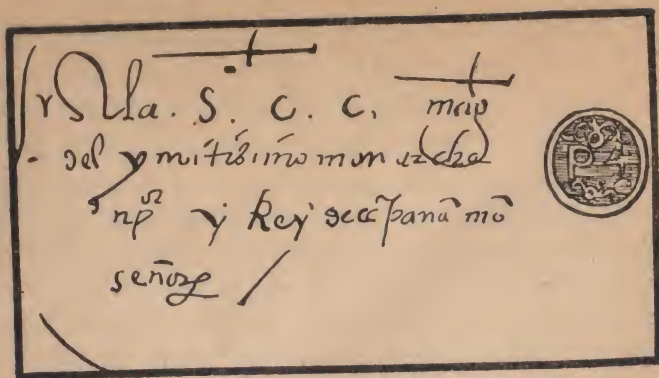 Ala. S. C. C. mag
del ynvitisimo monarcha
y Rey despana nro
señor